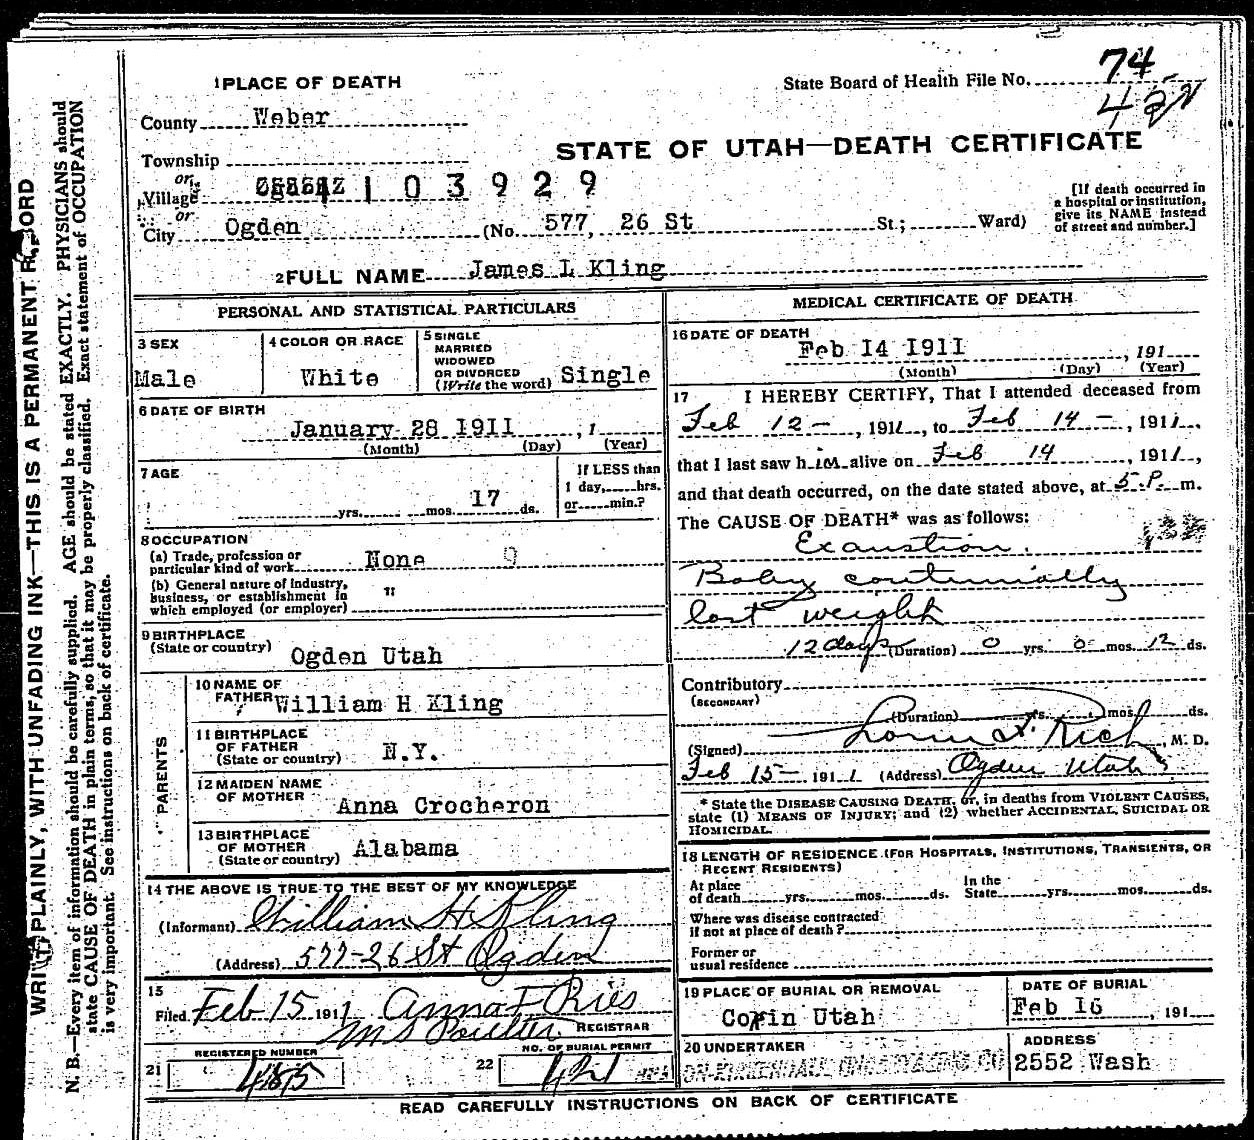 1 PLACE OF DEATH
State Board of Health File No. 74
County Weber
STATE OF UTAH—DEATH CERTIFICATE
Township
or
Village 1103929
or
City Ogden (No. 577, 26 St St.; Ward)
[If death occurred in a hospital or institution, give its NAME instead of street and number.]
2 FULL NAME James L Kling
PERSONAL AND STATISTICAL PARTICULARS
3 SEX
Male
4 COLOR OR RACE
White
5 SINGLE
MARRIED
WIDOWED
OR DIVORCED
(Write the word) Single
6 DATE OF BIRTH
January 28 1911, 1
(Month) (Day) (Year)
7 AGE
yrs. mos. 17 ds.
If LESS than
1 day, hrs.
or min.?
8 OCCUPATION
(a) Trade, profession or
particular kind of work None 9
(b) General nature of industry,
business, or establishment in "
which employed (or employer)
9 BIRTHPLACE
(State or country) Ogden Utah
PARENTS
10 NAME OF
FATHER William H Kling
11 BIRTHPLACE
OF FATHER
(State or country) N.Y.
12 MAIDEN NAME
OF MOTHER Anna Crocheron
13 BIRTHPLACE
OF MOTHER
(State or country) Alabama
14 THE ABOVE IS TRUE TO THE BEST OF MY KNOWLEDGE
(Informant) William H Kling
(Address) 577-26 St Ogden
15
Filed Feb 15 1911 Anna F Ries
M S Poulter REGISTRAR
21 REGISTERED NUMBER
22 NO. OF BURIAL PERMIT
421
MEDICAL CERTIFICATE OF DEATH
16 DATE OF DEATH
Feb 14 1911, 191
(Month) (Day) (Year)
17 I HEREBY CERTIFY, That I attended deceased from
Feb 12 -, 1911, to Feb 14 -, 1911,
that I last saw him alive on Feb 14, 1911,
and that death occurred, on the date stated above, at 5 P. m.
The CAUSE OF DEATH* was as follows:
Exaustion.
Baby continually
lost weight
12 days (Duration) 0 yrs. 0 mos. 12 ds.
Contributory
(SECONDARY)
(Duration) yrs. mos. ds.
(Signed) Rich, M. D.
Feb 15- 1911 (Address) Ogden Utah
* State the DISEASE CAUSING DEATH, or, in deaths from VIOLENT CAUSES,
state (1) MEANS OF INJURY; and (2) whether ACCIDENTAL, SUICIDAL OR
HOMICIDAL.
18 LENGTH OF RESIDENCE (FOR HOSPITALS, INSTITUTIONS, TRANSIENTS, OR
RECENT RESIDENTS)
At place
of death yrs. mos. ds.
In the
State yrs. mos. ds.
Where was disease contracted
if not at place of death?
Former or
usual residence
19 PLACE OF BURIAL OR REMOVAL
Corrin Utah
DATE OF BURIAL
Feb 16, 191
20 UNDERTAKER
ADDRESS
2552 Wash
READ CAREFULLY INSTRUCTIONS ON BACK OF CERTIFICATE
WRITE PLAINLY, WITH UNFADING INK—THIS IS A PERMANENT RECORD
N. B.—Every item of information should be carefully supplied. AGE should be stated EXACTLY. PHYSICIANS should
state CAUSE OF DEATH in plain terms, so that it may be properly classified. Exact statement of OCCUPATION
is very important. See instructions on back of certificate.